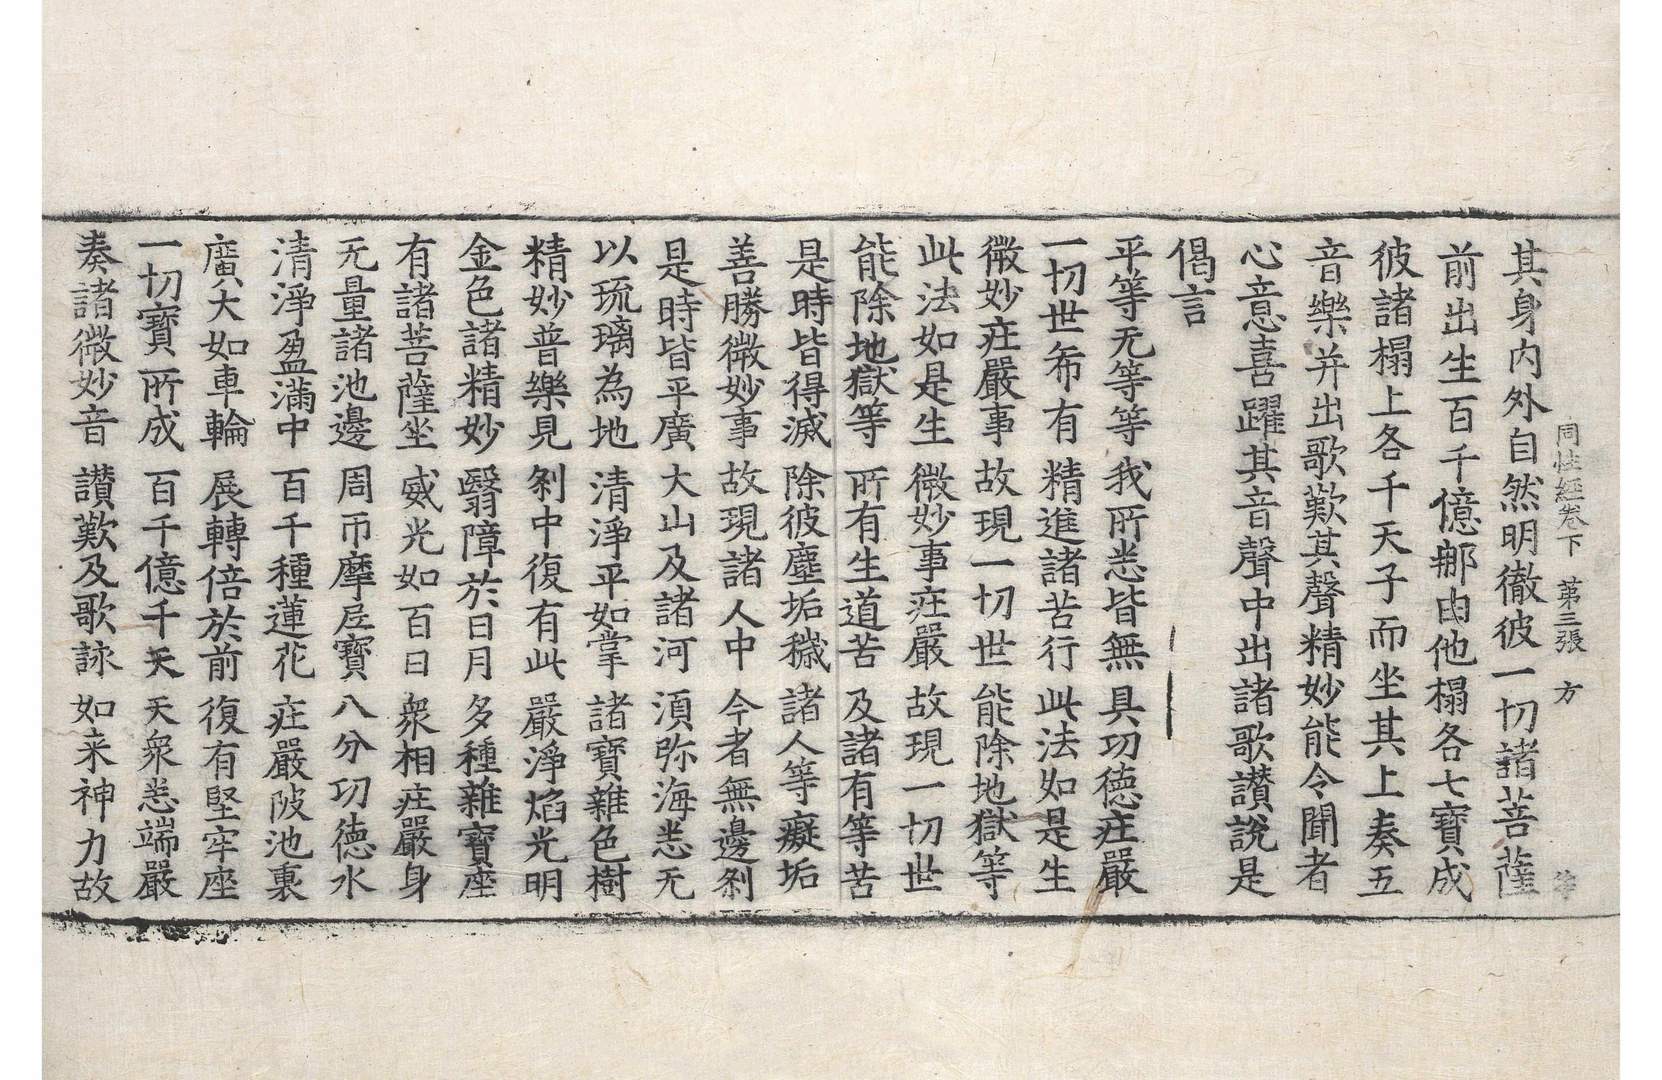 同性經卷下 苐三張 方
其身内外自然明徹彼一切諸菩薩
前出生百千億𨚗由他榻各七寶成
彼諸榻上各千天子而坐其上奏五
音樂并出歌歎其聲精妙能令聞者
心意喜躍其音聲中出諸歌讃說是
偈言
平等无等等 我所悉皆無 具功德庄嚴
一切世希有 精進諸苦行 此法如是生
微妙庄嚴事 故現一切世 能除地獄等
此法如是生 微妙事庄嚴 故現一切世
能除地獄等 所有生道苦 及諸有等苦
是時皆得滅 除彼塵垢穢 諸人等癡垢
善勝微妙事 故現諸人中 今者無邊刹
是時皆平廣 大山及諸河 湏弥海悉无
以琉璃為地 清淨平如掌 諸寶雜色樹
精妙普樂見 刹中復有此 嚴淨焰光明
金色諸精妙 翳障於日月 多種雜寶座
有諸菩薩坐 威光如百日 衆相庄嚴身
无量諸池邊 周帀摩尼寶 八分功德水
清淨盈滿中 百千種蓮花 庄嚴陂池裏
廣大如車輪 展轉倍於前 復有堅牢座
一切寶所成 百千億千天 天衆悉端嚴
奏諸微妙音 讃歎及歌詠 如来神力故